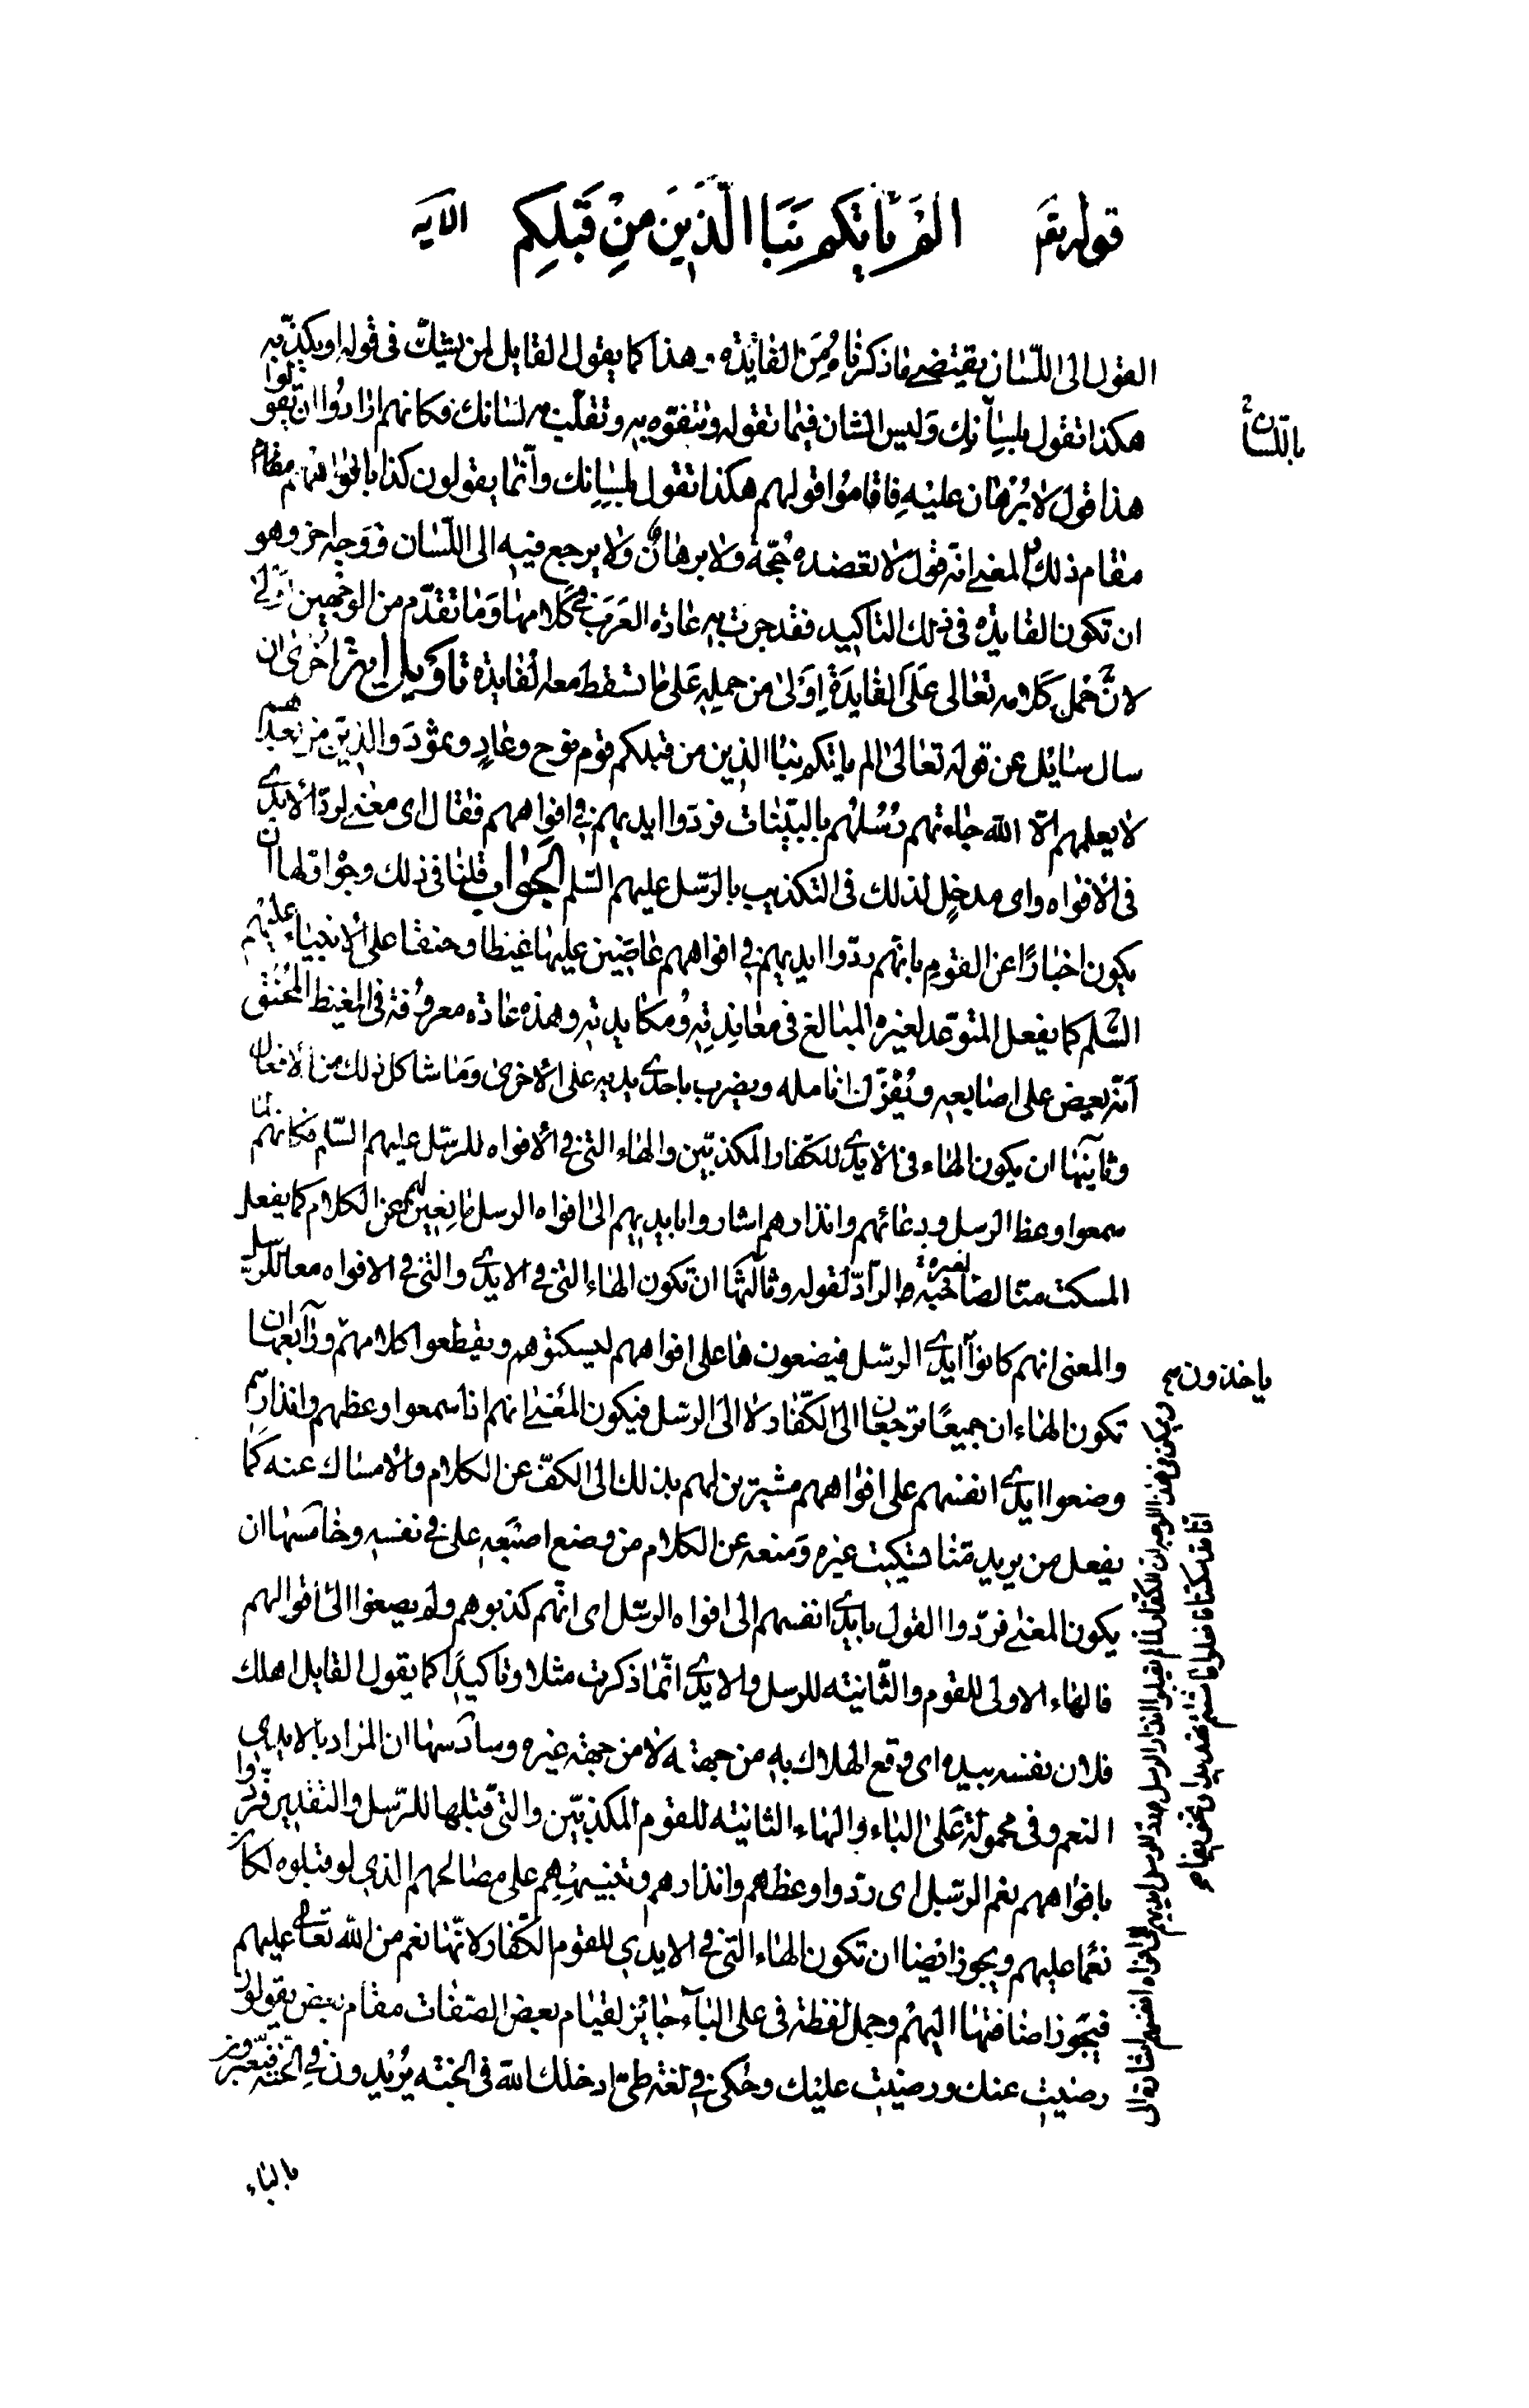 قوله تعالى الم ياتكم نبا الذين من قبلكم الايه
القول الى اللسان يقتضى ما ذكرناه من الفايدة هذا كما يقول القايل لمن يشك فى قوله او يكذبه
هكذا تقول بلسانك وليس الشان فيما تقوله وتتفوه به وتقلب به لسانك فكانهم ارادوا ان يقولوا
باللسان
هذا قول لا برهان عليه فاقاموا قولهم هكذا تقول بلسانك وانما يقولون كذا بافواههم مقام
مقام ذلك والمعنى انه قول لا تعضده حجة ولا برهان ولا يرجع فيه الى اللسان ووجه اخر وهو
ان تكون الفايده فى ذلك التاكيد فقد جرت به عادة العرب فى كلامها وما تقدم من الوجهين اولى
لان حمل كلامه تعالى على الفايدة اولى من حمله على ما تسقط معه الفايدة تاويل اية اخرى ان
سال سايل عن قوله تعالى الم ياتكم نبا الذين من قبلكم قوم نوح وعاد وثمود والذين من بعدهم
لا يعلمهم الا الله جاءتهم رسلهم بالبينات فردوا ايديهم فى افواههم فقال اى معنى لرد الايدى
فى الافواه واى مدخل لذلك فى التكذيب بالرسل عليهم السلم الجواب قلنا فى ذلك وجوه اولها ان
يكون اخبارا عن القوم بانهم ردوا ايديهم فى افواههم عاضين عليها غيظا وحنقا على الانبياء عليهم
السلم كما يفعل المتوعد لغيره المبالغ فى معاندته ومكايدته وهذه عادة معروفة فى المغيظ المحنق
انه يعض على اصابعه ويفرك انامله ويضرب باحدى يديه على الاخرى وما شاكل ذلك من الافعال
وثانيها ان يكون الهاء فى الايدى للكفار المكذبين والهاء التى فى الافواه للرسل عليهم السلم فكانهم لما
سمعوا وعظ الرسل ودعائهم وانذارهم اشاروا بايديهم الى افواه الرسل مانعين لهم عن الكلام كما يفعل
المسكت منا لصاحبه والراد لقوله وثالثها ان تكون الهاء التى فى الايدى والتى فى الافواه معا للرسل
والمعنى انهم كانوا ايدى الرسل فيضعونها على افواههم ليسكتوهم ويقطعوا كلامهم ورابعها ان
ياخذون
تكون الهاء ان جميعا ترجعان الى الكفار لا الى الرسل فيكون المعنى انهم اذا سمعوا وعظهم وانذارهم
وضعوا ايدى انفسهم على افواههم مشيرين لهم بذلك الى الكف عن الكلام والامساك عنه كما
يفعل من يريد منا تسكيت غيره ومنعه عن الكلام من وضع اصبعه على فى نفسه وخامسها ان
يكون المعنى فردوا القول بايدى انفسهم الى افواه الرسل اى انهم كذبوهم ولم يصغوا الى اقوالهم
فالهاء الاولى للقوم والثانيته للرسل والايدى انما ذكرت مثلا وتاكيدا كما يقول القايل اهلك
فلان نفسه بيده اى وقع الهلاك به من جهته لا من جهة غيره وسادسها ان المراد بالايدى
النعم وفى محمولة على الباء والهاء الثانيته للقوم المكذبين والتى قبلها للرسل والتقدير فردوا
بافواههم نعم الرسل اى ردوا وعظهم وانذارهم وتنبيههم على مصالحهم الذى لو قبلوه لكان
نعما عليهم ويجوز ايضا ان تكون الهاء التى فى الايدى للقوم الكفار لانها نعم من الله تعالى عليهم
فيجوز اضافتها اليهم وحمل لفظة فى على الباء جائز لقيام بعض الصفات مقام بعض يقولون
رضيت عنك ورضيت عليك وحكى فى لغة طى ادخلك الله فى الجنة يريدون فى الجنة فيعبرون
بالباء